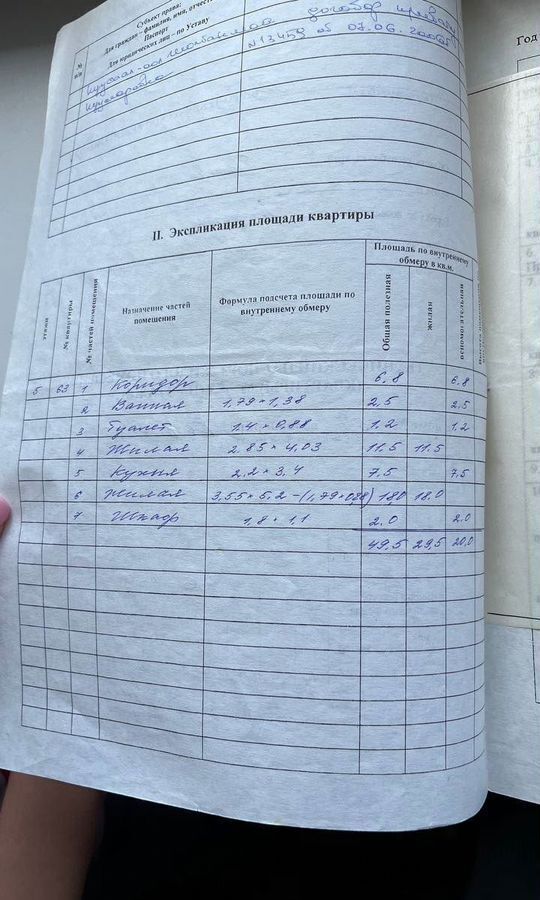 Субъект права:
Для граждан – фамилия, имя, отчест
Паспорт
Для юридических лиц – по Уставу
№ п/п
договор приват
N13459 от 07.06.2006г
II. Экспликация площади квартиры
этажи
№ квартиры
№ частей помещения
Назначение частей помещения
Формула подсчета площади по внутреннему обмеру
Площадь по внутреннему обмеру в кв.м.
Общая полезная
жилая
вспомогательная
5 63 1 Коридор 6,8 6,8
2 Ванная 1,79 × 1,38 2,5 2,5
3 Туалет 1.4 × 0,88 1,2 1.2
4 Жилая 2.85 × 4,03 11,5 11.5
5 Кухня 2,2 × 3,4 7,5 7,5
6 Жилая 3,55 × 5,2 – (1,79 × 0,28) 18,0 18.0
7 Шкаф 1,8 × 1,1 2.0 2.0
49,5 29,5 20,0
Год